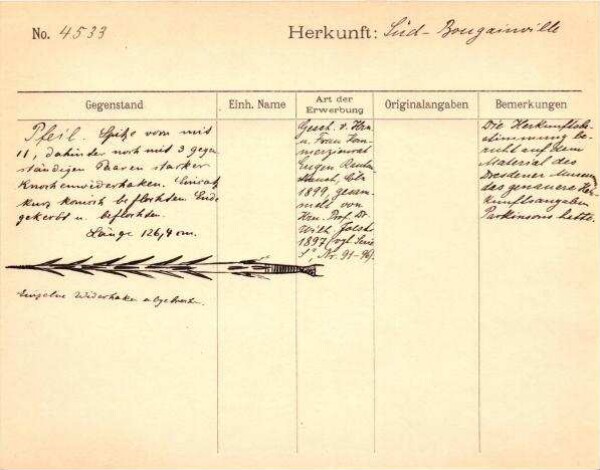 No. 4533
Herkunft: Süd-Bougainville
Gegenstand
Einh. Name
Art der Erwerbung
Originalangaben
Bemerkungen
Pfeil. Spitze vorn mit
11, dahinter noch mit 3 gegen
ständigen Paaren starker
Knochenwiderhaken.
kurz konisch beflochten. Ende
gekerbt u. beflochten.
Länge 126,4 cm.
Einzelne Widerhaken abgebrochen.
Gesch. v. Hrn.
u. Frau Kom-
merzienrat
Eugen Rauten-
strauch, Cöln
1899, gesam-
melt von
Hrn. Prof. Dr.
Wilh. Joest
1897 (vgl.
Nr. 91-96).
Die Herkunftsbe-
stimmung be-
ruht auf dem
Material des
Dresdener Museums
des genauere Her-
kunftsangaben
Parkinsons hatte.